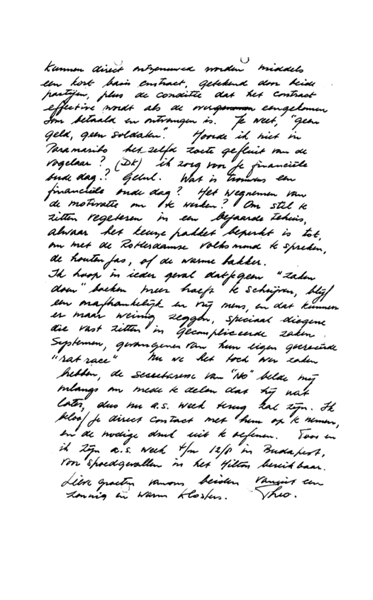 kunnen direct ontzenuwd worden middels
een kort basis contract, getekend door beide
partijen, plus de conditie dat het contract
effective wordt als de overeengekomen
som betaald en ontvangen is. Je weet, "geen
geld, geen soldaten". Hoorde ik niet in
Paramaribo hetzelfde zoete gefluit van de
vogelaar? (Dk) ik zorg voor je financiële
oude dag.? Gelul. Wat is trouwens een
financiële oude dag? Het wegnemen van
de motivatie om te werken? Om stil te
zitten vegeteren in een bejaarde tehuis,
alwaar het keuze pakket beperkt is tot,
om met de Rotterdamse volksmond te spreken,
de houten jas, of de warme bakker.
Ik hoop in ieder geval dat je geen "zaken
doen" boeken meer hoeft te schrijven, blijf
een onafhankelijk en vrij mens, en dat kunnen
er maar weinig zeggen, speciaal diegene
die vast zitten in gecompliceerde zaken
systemen, gevangenen van hun eigen gecreëerde
"rat race" Nu we het toch over zaken
hebben, de secretaresse van "No" belde mij
onlangs om mede te delen dat hij wat
later, dus nu a.s. week terug zal zijn. Ik
beloof je direct contact met hem op te nemen,
en de nodige druk uit te oefenen. Toos en
ik zijn a.s. week t/m 12/8 in Budapest,
voor spoedgevallen in het Hilton bereikbaar.
Lieve groeten van ons beiden vanuit een
zonnig en warm Klosters. Theo.